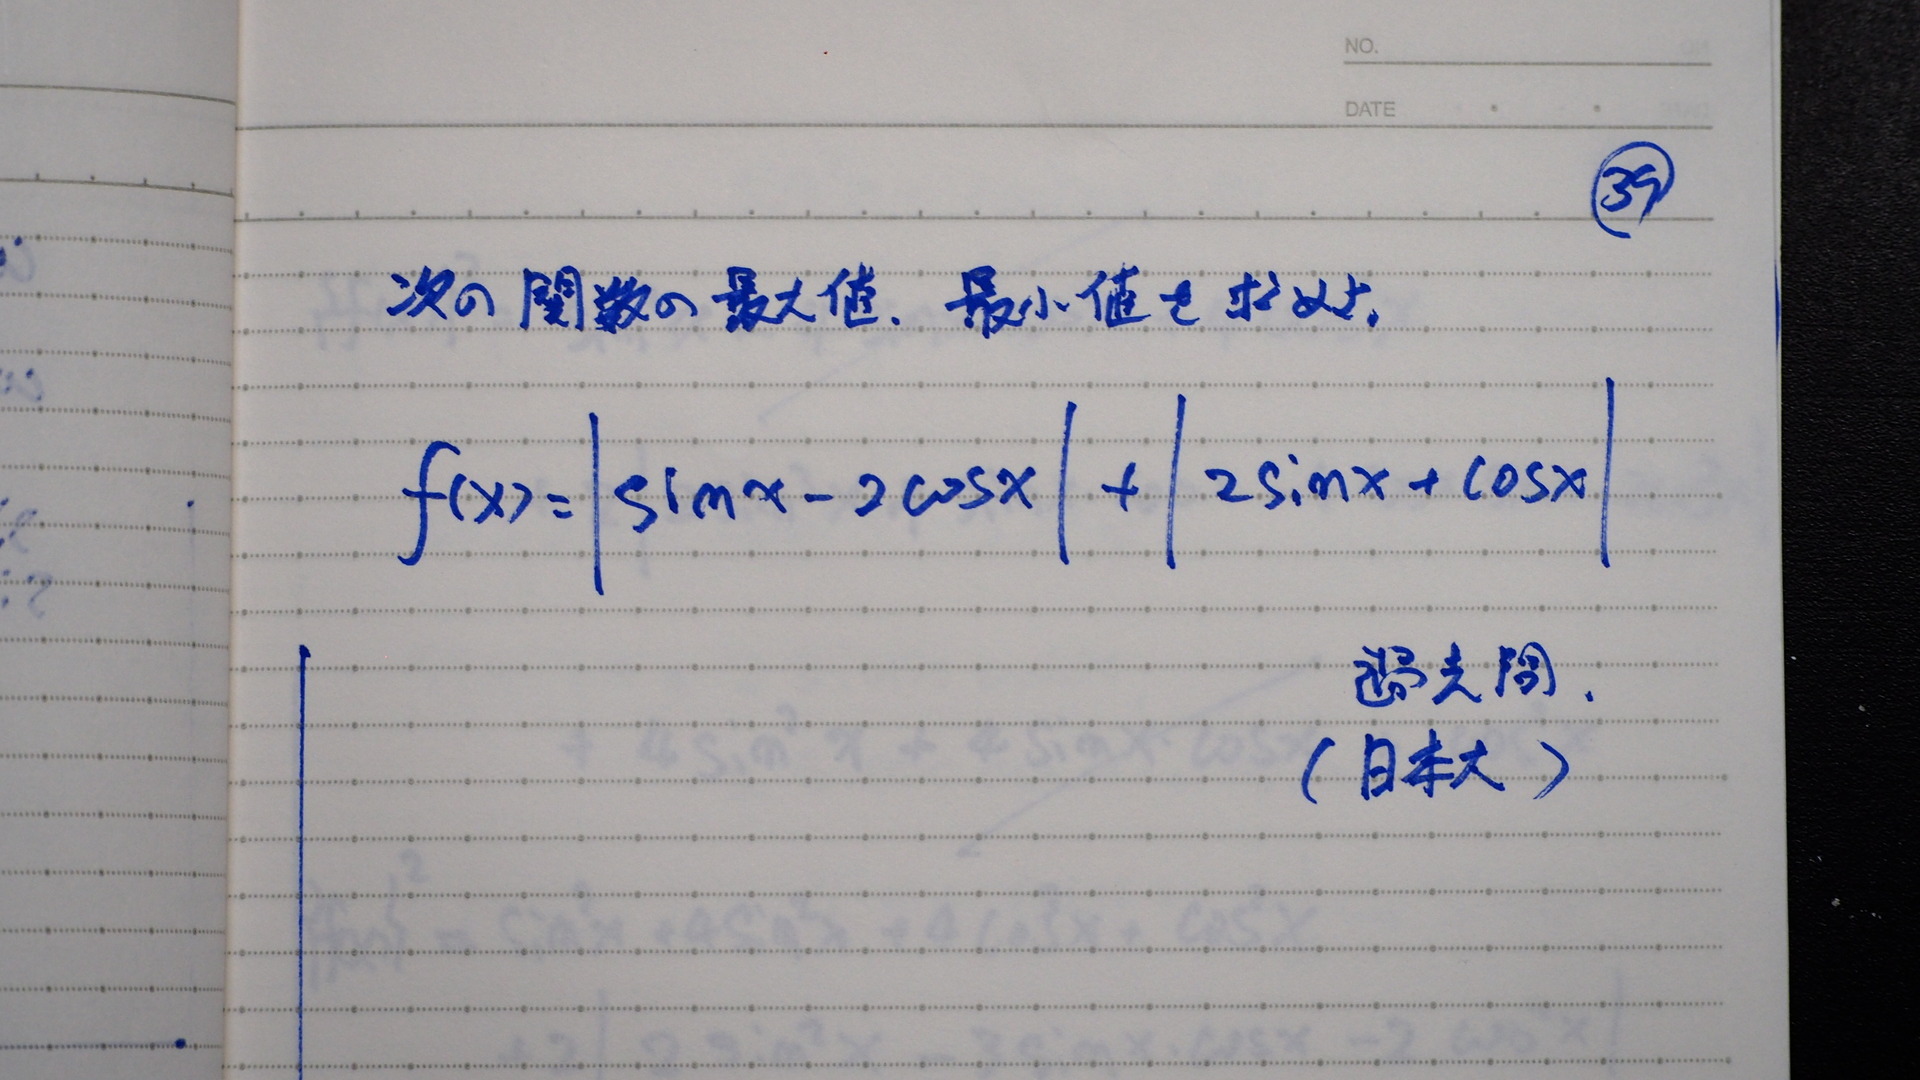 NO.
DATE
39
次の関数の最大値、最小値を求めよ。
f(x)=|sinx-2cosx|+|2sinx+cosx|
過去問.
(日本大)